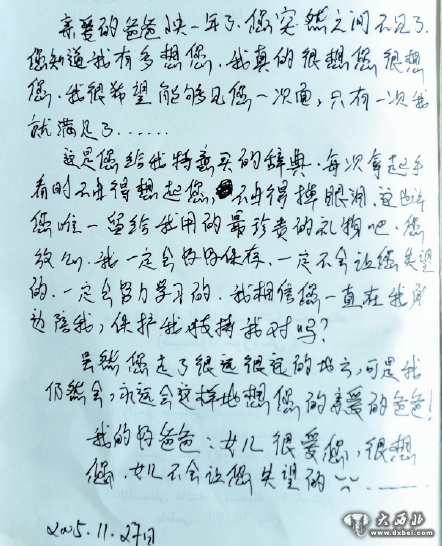 亲爱的爸爸快一年了.您突然之间不见了.
您知道我有多想您.我真的很想您很想
您.我很希望能够见您一次面,只有一次我
就满足了......
这是您给我特意买的辞典.每次拿起字
看时不由得想起您,不由得掉眼泪.这也许
您唯一留给我用的最珍贵的礼物吧.您
放心.我一定会好好保存.一定不会让您失望
的.一定会努力学习的.我相信您一直在我身
边陪我,保护我 支持我对吗?
虽然您走了很远很远的地方,可是我
仍然会,永远会这样地想您的亲爱的爸爸!
我的好爸爸:女儿很爱您,很想
您.女儿不会让您失望的......
2005.11.27日
大西北
www.dxbei.com